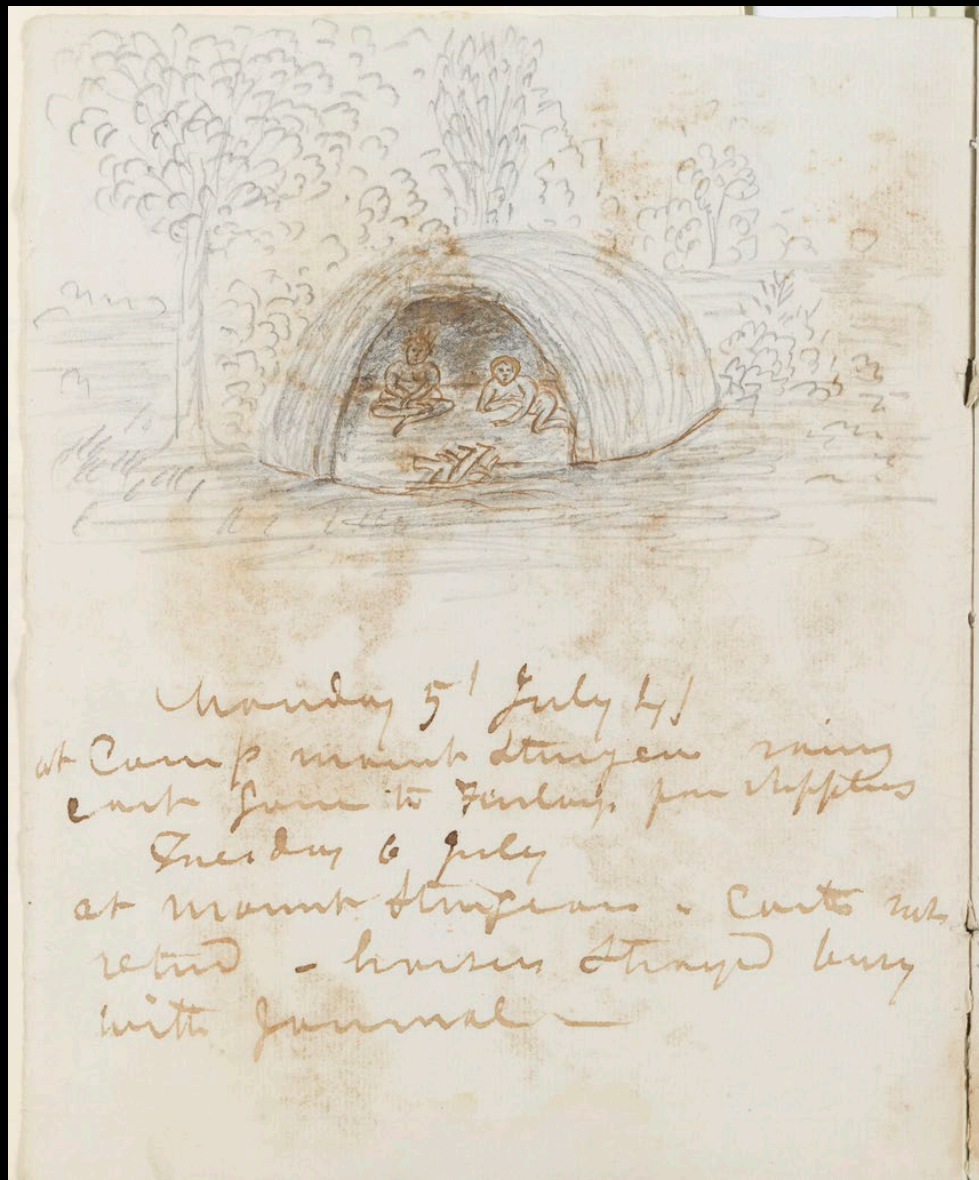 Monday 5' July 41
at Camp mount Sturgeon rainy
cart gone to Finlays for supplies
Tuesday 6 July
at mount Sturgeon - Carts not
retnd - horses strayed busy
with Journal -